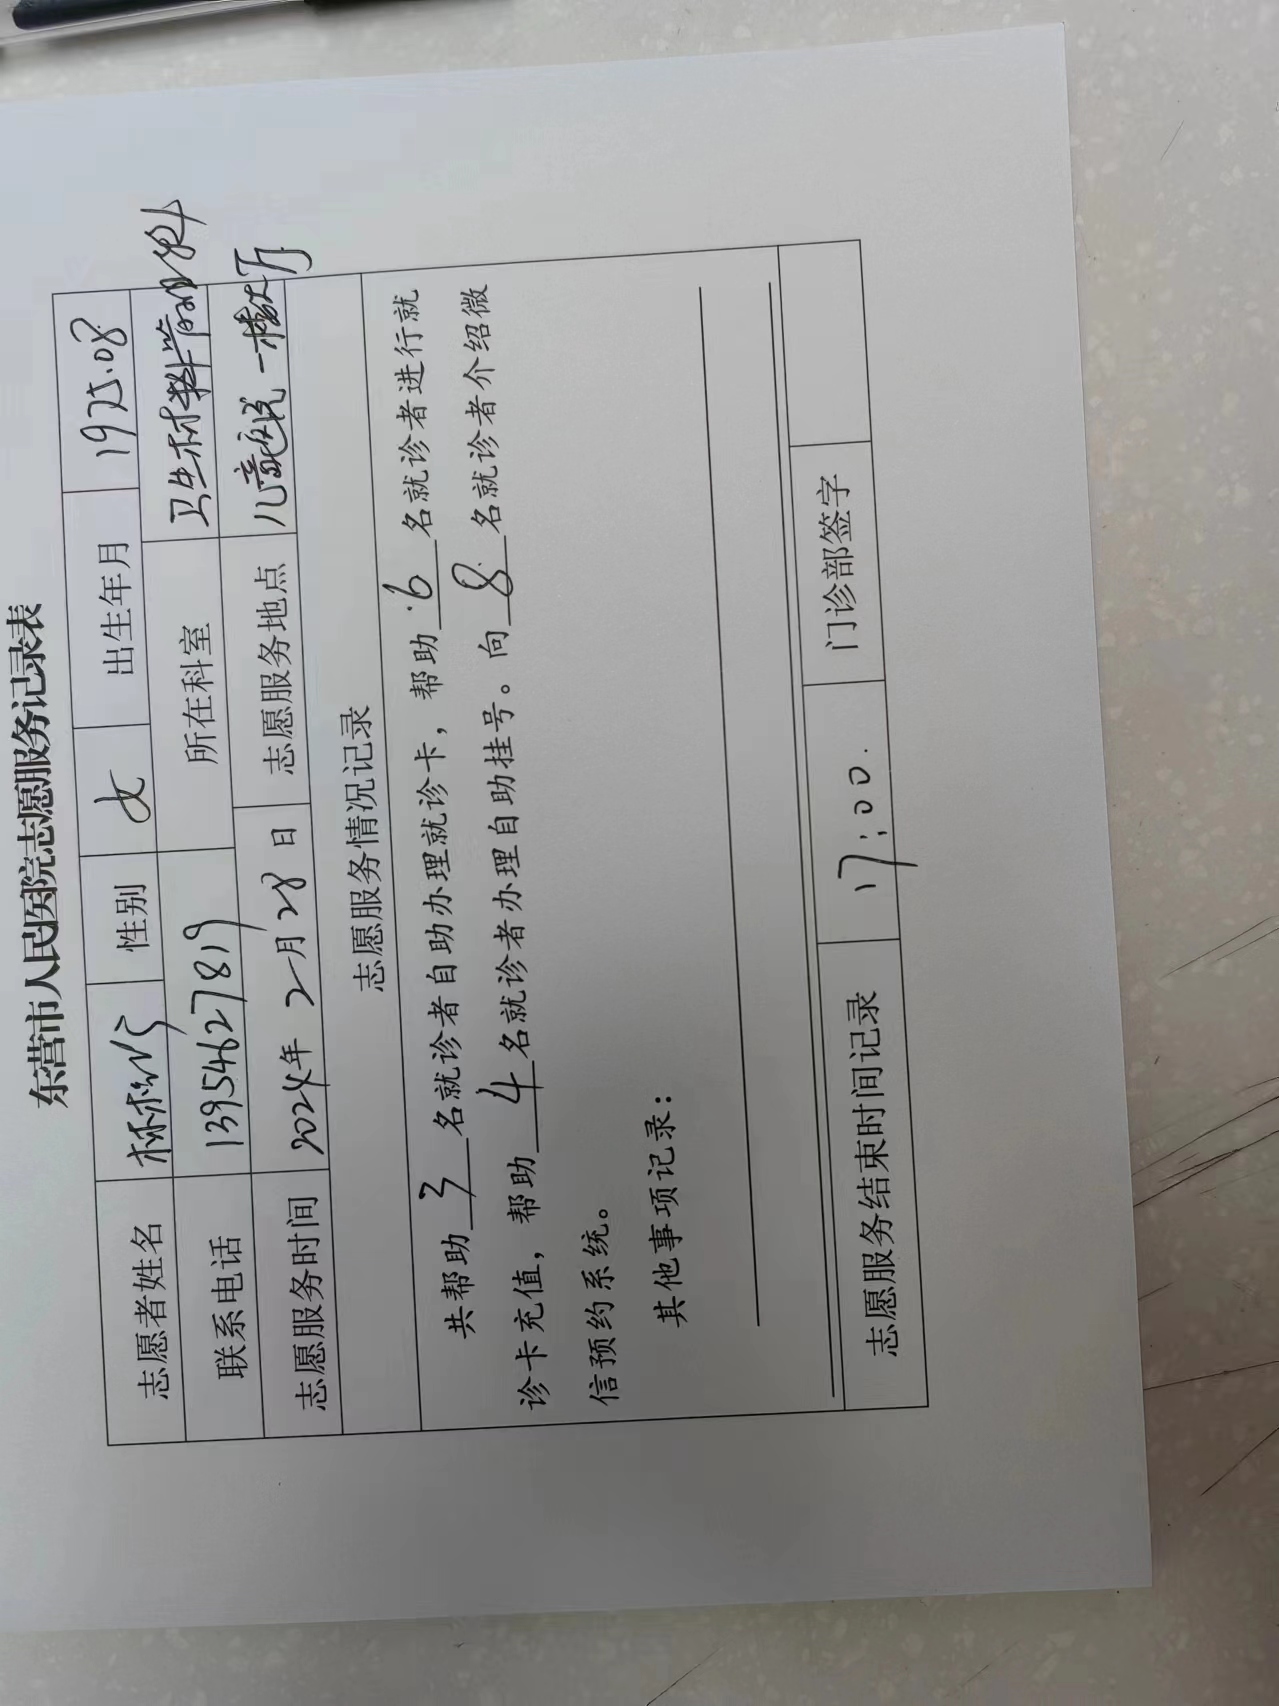 东营市人民医院志愿服务记录表
志愿者姓名 性别 女 出生年月 1975.08
联系电话 13954627819 所在科室 卫生材料管理科
志愿服务时间 2024年 2月28日 志愿服务地点 儿童医院一楼大厅
志愿服务情况记录
共帮助 3 名就诊者自助办理就诊卡，帮助 6 名就诊者进行就
诊卡充值，帮助 4 名就诊者办理自助挂号。向 8 名就诊者介绍微
信预约系统。
其他事项记录：
志愿服务结束时间记录 17:00. 门诊部签字